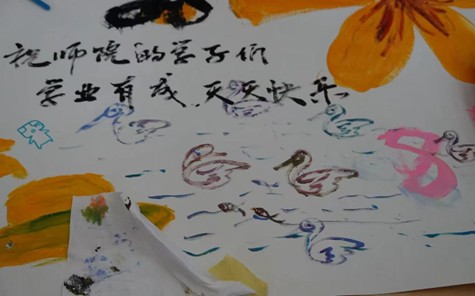 祝师院的学子们
学业有成,天天快乐